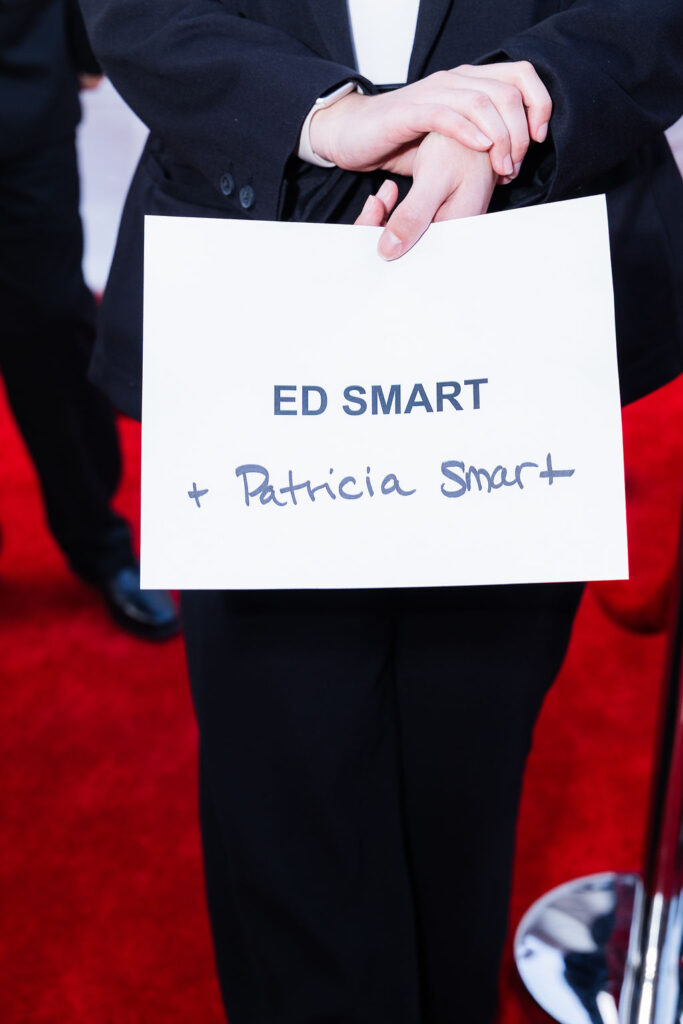 ED SMART
+ Patricia Smart